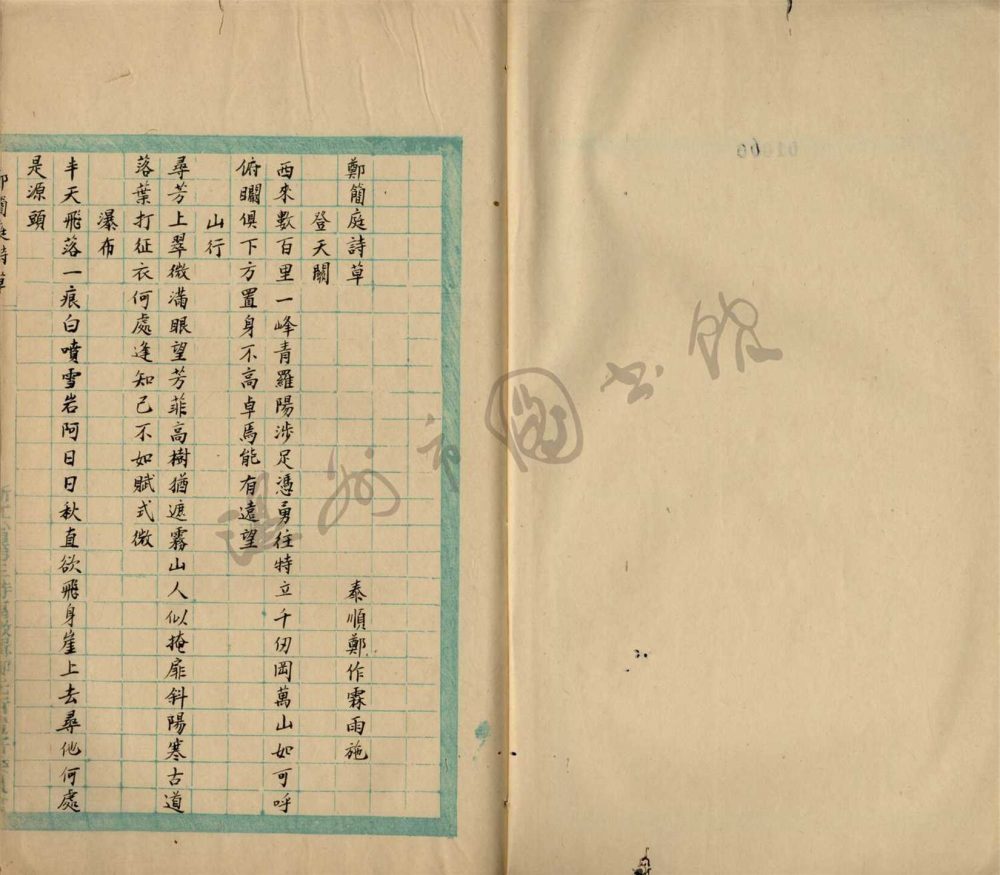 鄭簡庭詩草
泰順鄭作霖雨施
登天關
西來數百里一峰青羅陽涉足憑勇往特立千仞岡萬山如可呼
俯瞰俱下方置身不高卓焉能有遠望
山行
尋芳上翠微滿眼望芳菲高樹猶遮霧山人似掩扉斜陽寒古道
落葉打征衣何處逢知己不如賦式微
瀑布
半天飛落一痕白噴雪岩阿日日秋直欲飛身崖上去尋他何處
是源頭
簡庭詩草
溫州市圖书館